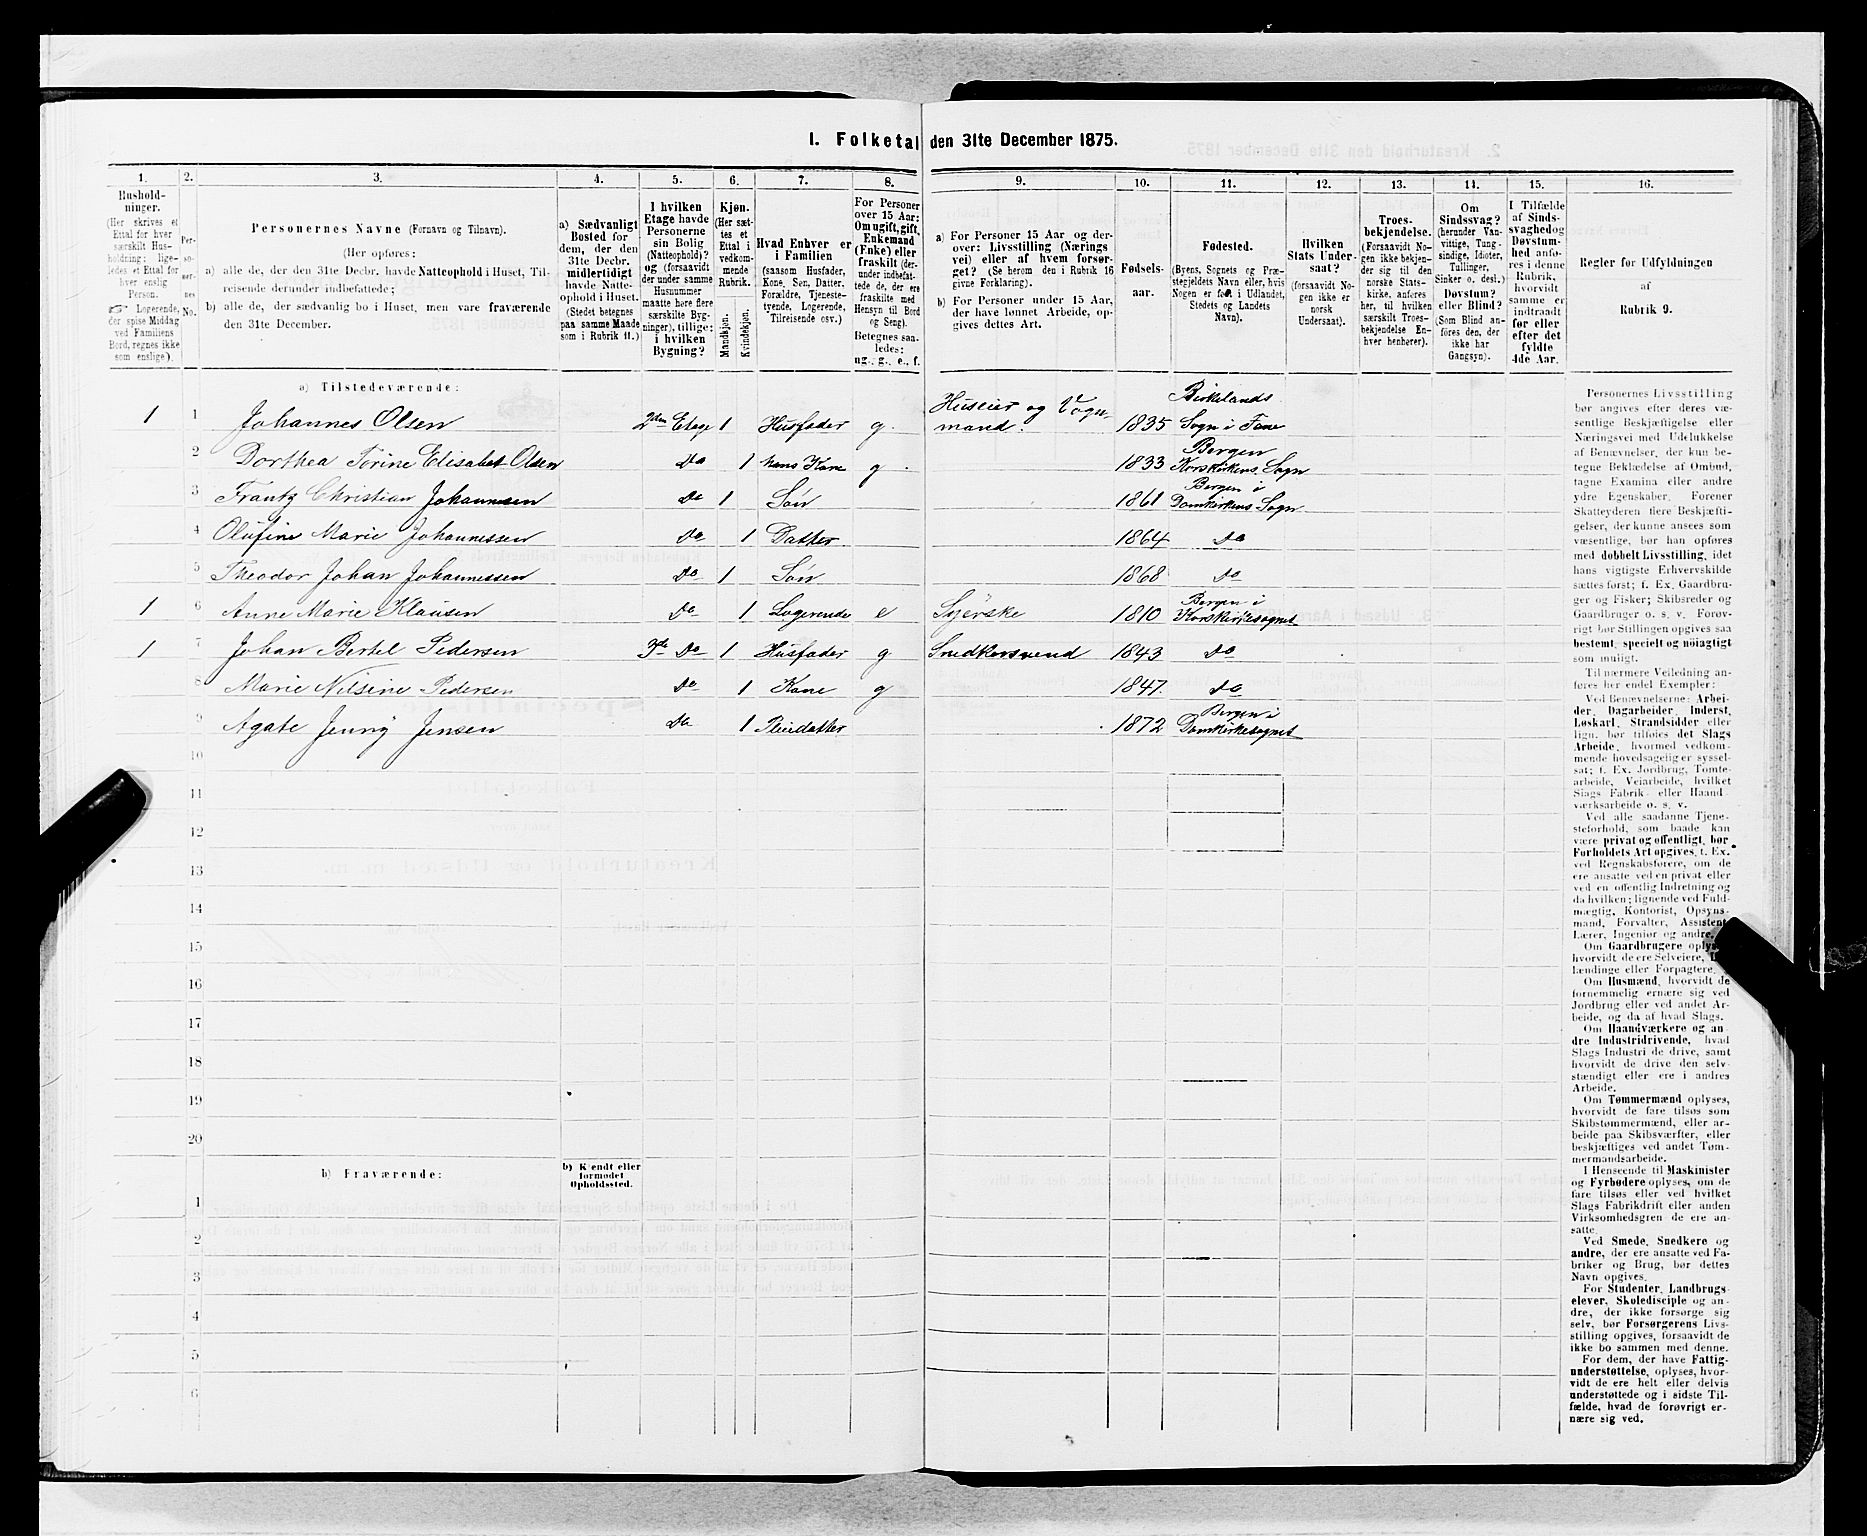 I. Folketal den 31te December 1875.
1.
Hushold-
ninger.
(Her skrives et
Ettal for hver
særskilt Hus-
holdning; lige-
ledes et Ettal for
hver enslig
Person.
☞ Logerende,
der spise Middag
ved Familiens
Bord, regnes ikke
som enslige).
2.
Per-
so-
ner-
nes
No.
3.
Personernes Navne (Fornavn og Tilnavn).
(Her opføres:
a) alle de, der den 31te Decbr. havde Natteophold i Huset, Til-
reisende derunder indbefattede;
b) alle de, der sædvanlig bo i Huset, men vare fraværende
den 31te December.
4.
a) Sædvanligt
Bosted for
dem, der den
31te Decbr.
midlertidigt
havde Natte-
ophold i Huset.
(Stedet betegnes
paa samme Maade
som i Rubrik 11.)
5.
I hvilken
Etage havde
Personerne
sin Bolig
(Natteophold)?
og (forsaavidt
der under samme
Husnummer
maatte høre flere
særskilte Byg-
ninger), tillige:
i hvilken
Bygning?
6.
Kjøn.
(Her sæt-
tes et
Ettal i
vedkom-
mende
Rubrik.
Mandkjøn.
Kvindekjøn.
7.
Hvad Enhver er
i Familien
(saasom Husfader,
Kone, Søn, Datter,
Forældre, Tjeneste-
tyende, Logerende,
Tilreisende osv.)
8.
For Personer
over 15 Aar:
Om ugift, gift,
Enkemand
(Enke) eller
fraskilt (der-
under indbefat-
tede de, der ere
fraskilte med
Hensyn til Bord
og Seng).
Betegnes saa-
ledes:
ug., g., e., f.
9.
a) For Personer 15 Aar og der-
over: Livsstilling (Nærings
vei) eller af hvem forsør-
get? (Se herom den i Rubrik 16
givne Forklaring).
b) For Personer under 15 Aar,
der have lønnet Arbeide, op-
gives dettes Art.
10.
Fødsels-
aar.
11.
Fødested.
(Byens, Sognets og Præ-
stegjeldets Navn eller, hvis
Nogen er født i Udlandet,
Stedets og Landets
Navn).
12.
Hvilken
Stats Under-
saat?
(forsaavidt No-
gen ikke er
norsk
Undersaat).
13.
Troes-
bekjendelse.
(Forsaavidt No-
gen ikke bekjen-
der sig til den
norske Stats-
kirke, anføres
her, til hvilken
særskilt Troes-
bekjendelse En-
hver henhører).
14.
Om
Sindssvag?
(herunder Van-
vittige, Tung-
sindige, Idioter,
Tullinger,
Sinker o. desl.)
Døvstum?
eller Blind?
(Som Blind an-
føres den, der
ikke har
Gangsyn).
15.
I Tilfælde
af Sinds-
svaghed og
Døvstum-
hed anfø-
res i denne
Rubrik,
hvorvidt
samme er
indtraadt
før eller
efter det
fyldte
4de Aar.
16.
Regler før Udfyldningen
af
Rubrik 9.
a) Tilstedeværende:
1 1 Johannes Olsen 2den Etage 1 Husfader g. Huseier og Vogn-mand. 1835 Birkelands Sogn i Fane
2 Dorthea Torine Elisabet Olsen Do 1 hans Kone g. 1833 Bergen Korskirkens Sogn
3 Frantz Christian Johannesen Do 1 Søn 1861 Bergen i Domkirkens Sogn
4 Olufine Marie Johannessen Do 1 Datter 1864 Do
5 Theodor Johan Johannessen Do 1 Søn 1868 Do
1 6 Anne Marie Klausen Do 1 Logerende e Syerske 1810 Bergen i Korskirkesognet
1 7 Johan Bertel Pedersen 3de Do 1 Husfader g Snedkersvend 1843 Do
8 Marie Nilsine Pedersen Do 1 Kone g 1847. Do
9 Agate Jenny Jensen Do 1 Pleiedatter 1872 Bergen i Domkirkesognet
10
11
12
13
14
15
16
17
18
19
20
b) Fraværende:
b) Kjendt eller
formodet
Opholdssted.
1
2
3
4
5
6
Personernes Livsstilling
bør angives efter deres væ-
sentlige Beskjæftigelse eller
Næringsvei med Udelukkelse
af Benævnelser, der kun be-
tegne Beklædelse af Ombud,
tagne Examina eller andre
ydre Egenskaber. Forener
Skatteyderen flere Beskjæfti-
gelser, der kunne ansees som
væsentlige, bør han opføres
med dobbelt Livsstilling, idet
hans vigtigste Erhvervskilde
sættes først; f. Ex. Gaardbru-
ger og Fisker; Skibsreder og
Gaardbruger o. s. v. Forøv-
rigt bør Stillingen opgives saa
bestemt, specielt og nøiagtigt
som muligt.
Til nærmere Veiledning an-
føres her endel Exempler:
Ved Benævnelserne: Arbei-
der, Dagarbeider, Inderst,
Løskarl, Strandsidder eller
lign. bør tilføies det Slags
Arbeide, hvormed vedkom-
mende hovedsagelig er syssel-
sat; f. Ex. Jordbrug, Tomte-
arbeide, Veiarbeide, hvilket
Slags Fabrik- eller Haand-
værksarbeide o. s. v.
Ved alle saadanne Tjene-
steforhold, som baade kan
være privat og offentligt, bør
Forholdets Art opgives, f. Ex.
ved Regnskabsførere, om de
ere ansatte ved en privat eller
ved en offentlig Indretning og
da hvilken; lignende ved Fuld-
mægtig, Kontorist, Opsyns-
mand, Forvalter, Assistent,
Lærer, Ingeniør og andre.
Om Gaardbrugere oplyses,
hvorvidt de ere Selveiere,
lændinge eller Forpagtere.
Om Husmænd, hvorvidt de
fornemmelig ernære sig ved
Jordbrug eller ved andet Ar-
beide, og da af hvad Slags.
Om Haandværkere og an-
dre Industridrivende, hvad
Slags Industri de drive, samt
hvorvidt de drive den selv-
stændigt eller ere i andres
Arbeide.
Om Tømmermænd oplyses,
hvorvidt de fare tilsøs som
Skibstømmermænd, eller ar-
beide paa Skibsværfter, eller
beskjæftiges ved andet Tøm-
mermandsarbeide.
I Henseende til Maskinister
og Fyrbødere oplyses, om de
fare tilsøs eller ved hvilket
Slags Fabrikdrift eller anden
Virksomhedsgren de ere an-
satte.
Ved Smede, Snedkere og
andre, der ere ansatte ved Fa-
briker og Brug, bør dettes
Navn opgives.
For Studenter, Landbrugs-
elever, Skoledisciple og an-
dre, der ikke forsørge sig
selv, bør Forsørgerens Livs-
stilling opgives, forsaavidt de
ikke bo sammen med denne.
For dem, der have Fattig-
understøttelse, oplyses, hvor-
vidt de ere helt eller delvis
understøttede og i sidste Til-
fælde, hvad de forøvrigt er-
nære sig ved.